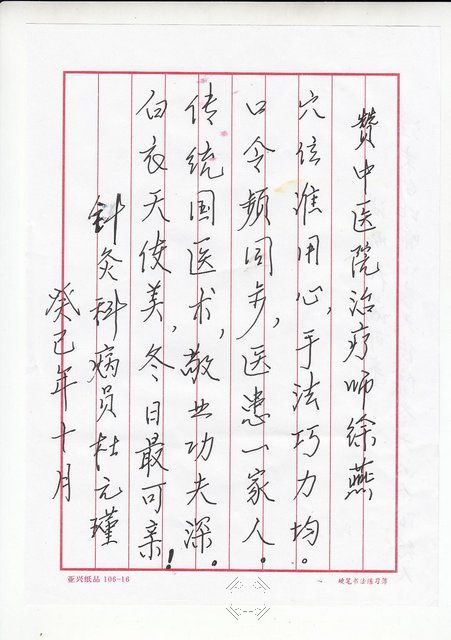 赞中医院治疗师徐燕
穴位准用心,手法巧力均。
口令频同步,医患一家人。
传统国医术,敬业功夫深。
白衣天使美,冬日最可亲!
针灸科病员杜元瑾
癸巳年十月
亚兴纸品 106-16
硬笔书法练习簿